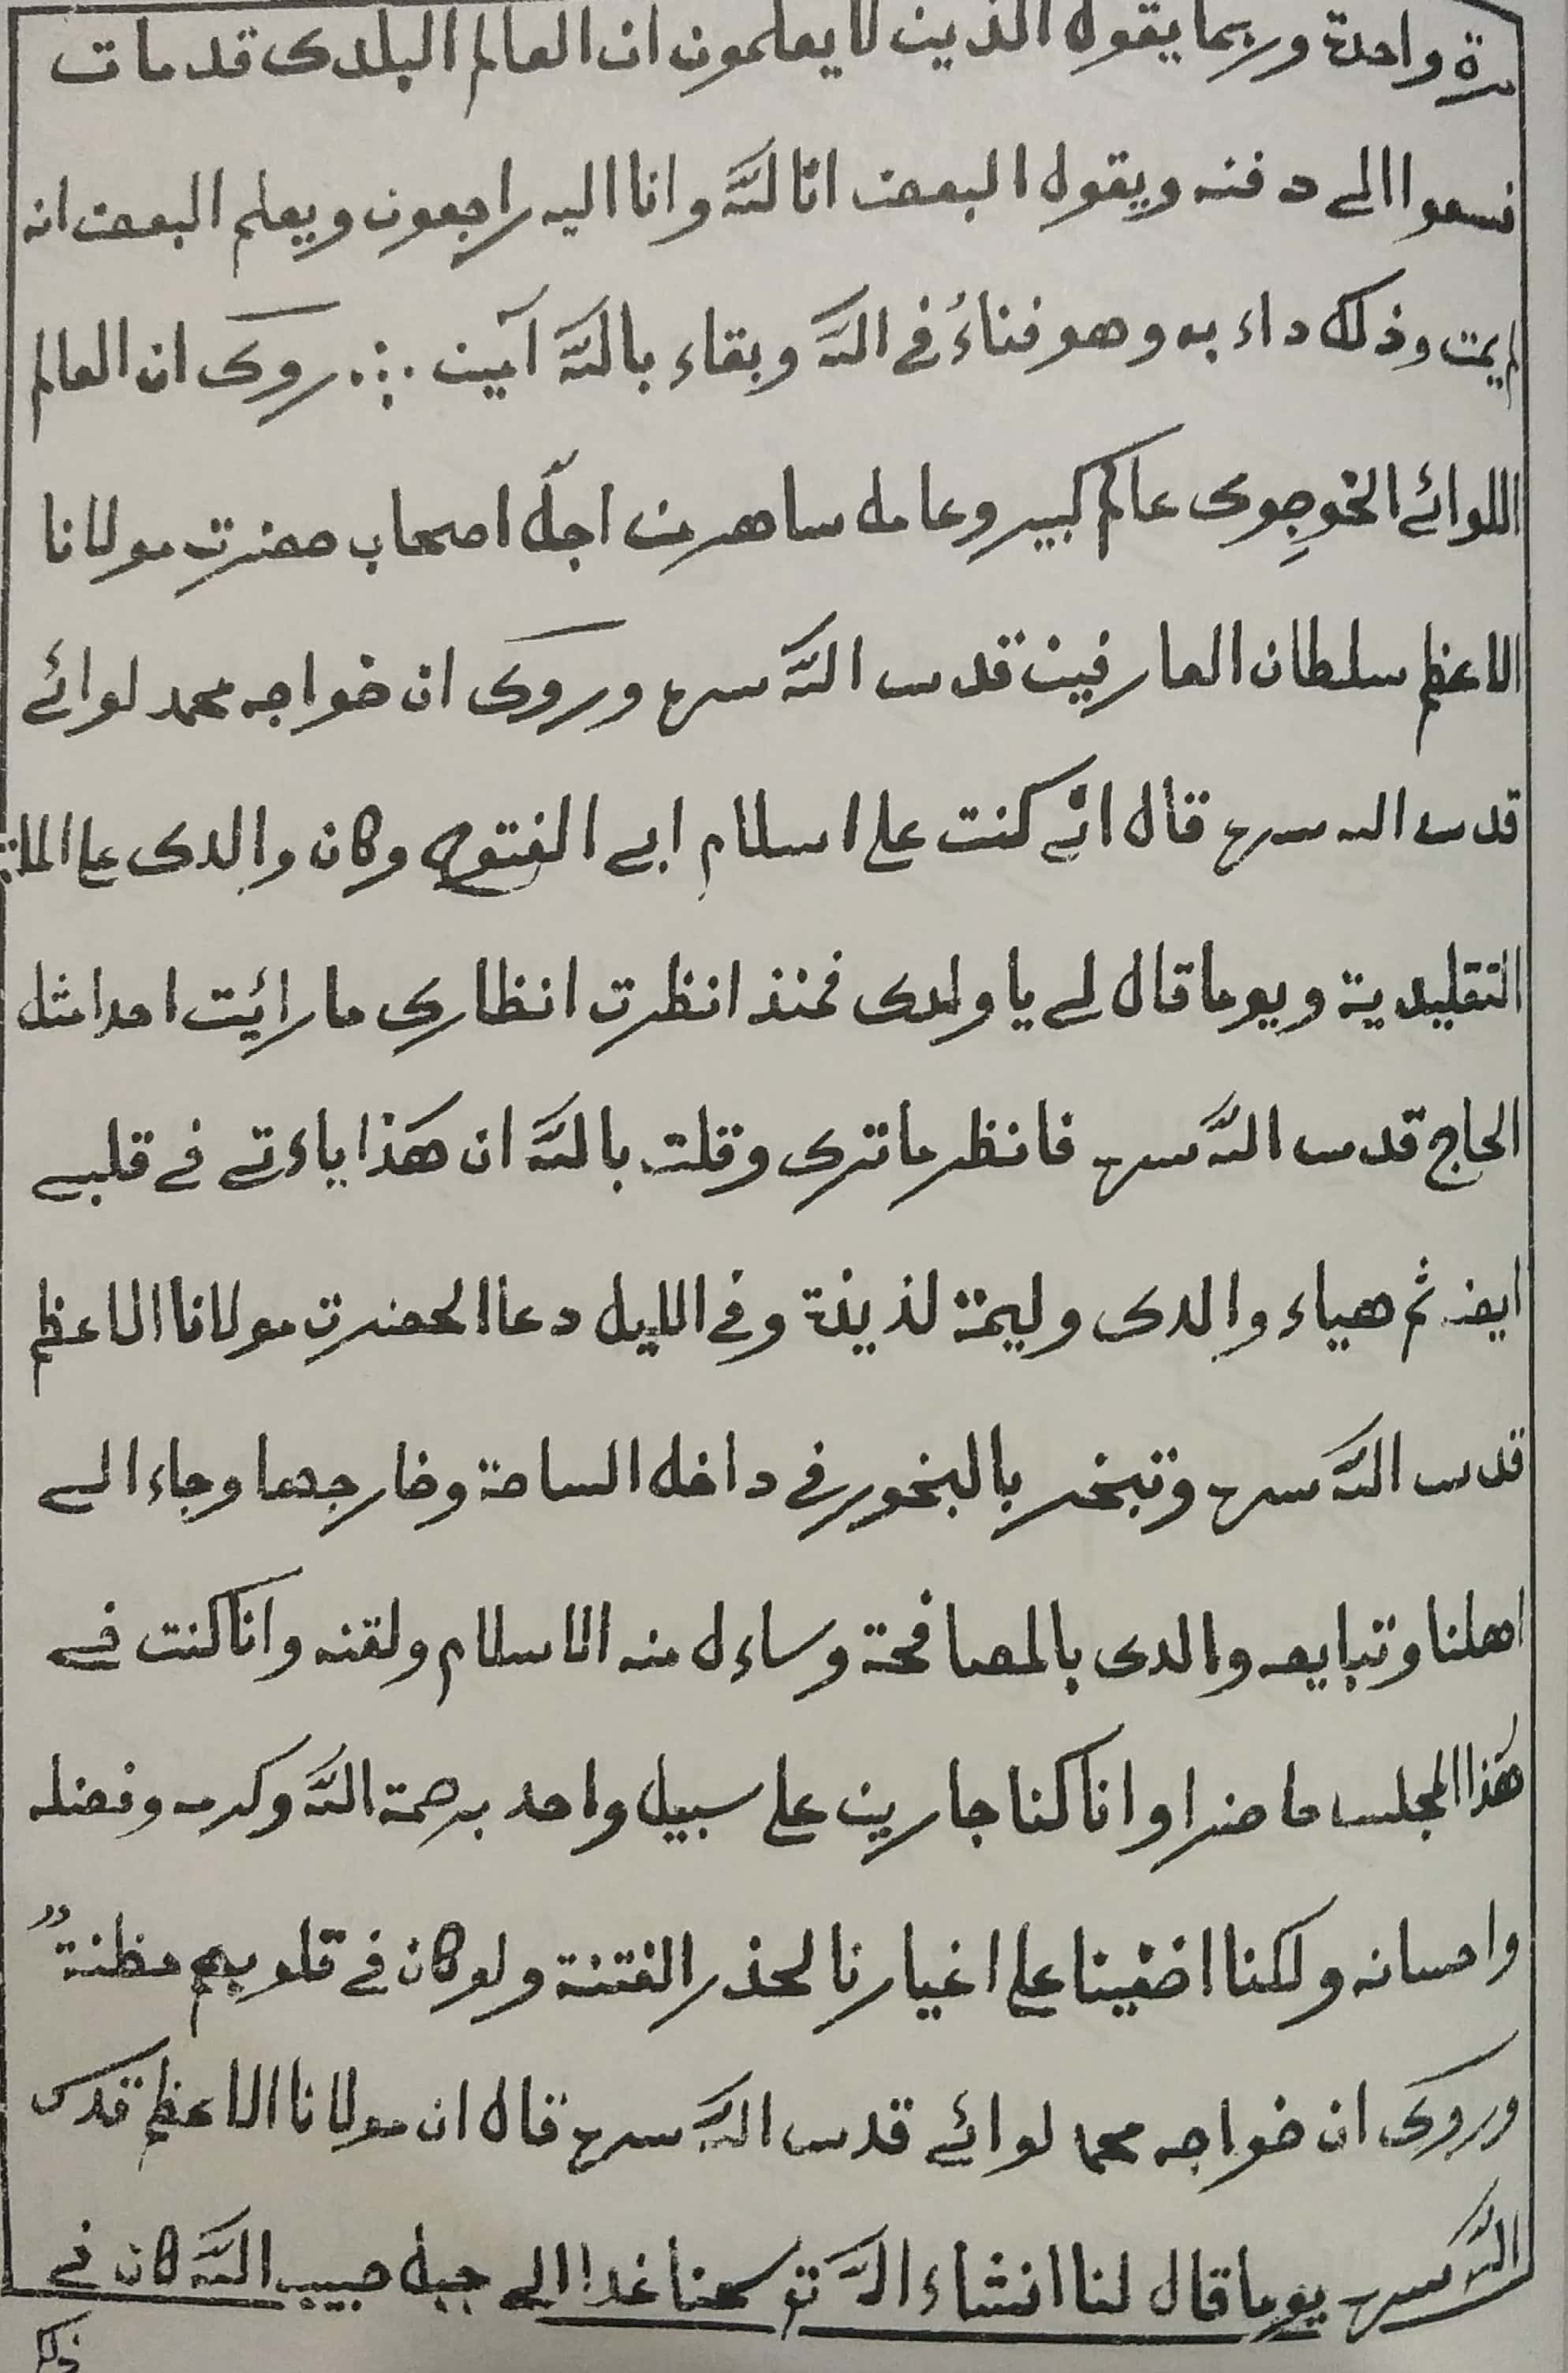 مرة واحدة وربما يقول الذين لا يعلمون ان العالم البلدى قد مات
نسعوا الى دفنه ويقول البعض انا لله وانا اليه راجعون ويعلم البعض انه
لم يمت وذلك داء به وهو فناءُ فى الله وبقاء بالله آمين ∴ روى ان العالم
اللوائے الخوجِوى عالم كبير وعامل ساهر من اجلّ اصحاب حضرت مولانا
الاعظم سلطان العارفين قدس الله سره وروى ان خواجه محمد لوائے
قدس الله سره قال انّے كنت على اسلام ابى الفتوح وكان والدى على
التقليدية ويوما قال لے يا ولدى فمنذ انظرت انظارى ما رائت احدا مثل
الحاج قدس الله سره فانظر ما ترى وقلت بالله ان هذا ياءتے فے قلبے
ايضا ثم هياء والدى وليمة لذيذة وفى الليل دعا الحضرت مولانا الاعظم
قدس الله سره وتبخر بالبخور فى داخل الساحة وخارجها وجاء الے
اهلنا وتبايعه والدى بالمصافحة وساءل منه الاسلام ولقنه وانا كنت فے
هذا المجلس حاضرا وانا كنا جارين على سبيل واحد برحمة الله وكرمه وفضله
واحسانه ولكنا اخفينا على اغيارنا لحذر الفتنة ولو كان فے قلوبهم مظنةٌ
وروى ان خواجه محمد لوائے قدس الله سره قال ان مولانا الاعظم قدس
الله سره يوما قال لنا انشاء الله غدا الے جبل حبيب الله كان فے
ذلك